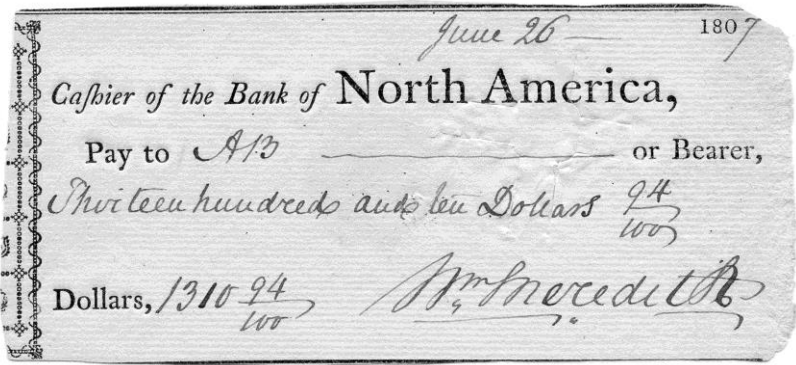 June 26 — 1807
Caſhier of the Bank of North America,
Pay to AB ———— or Bearer,
Thirteen hundred and ten Dollars 94/100
Dollars, 1310 94/100 Wm Meredith